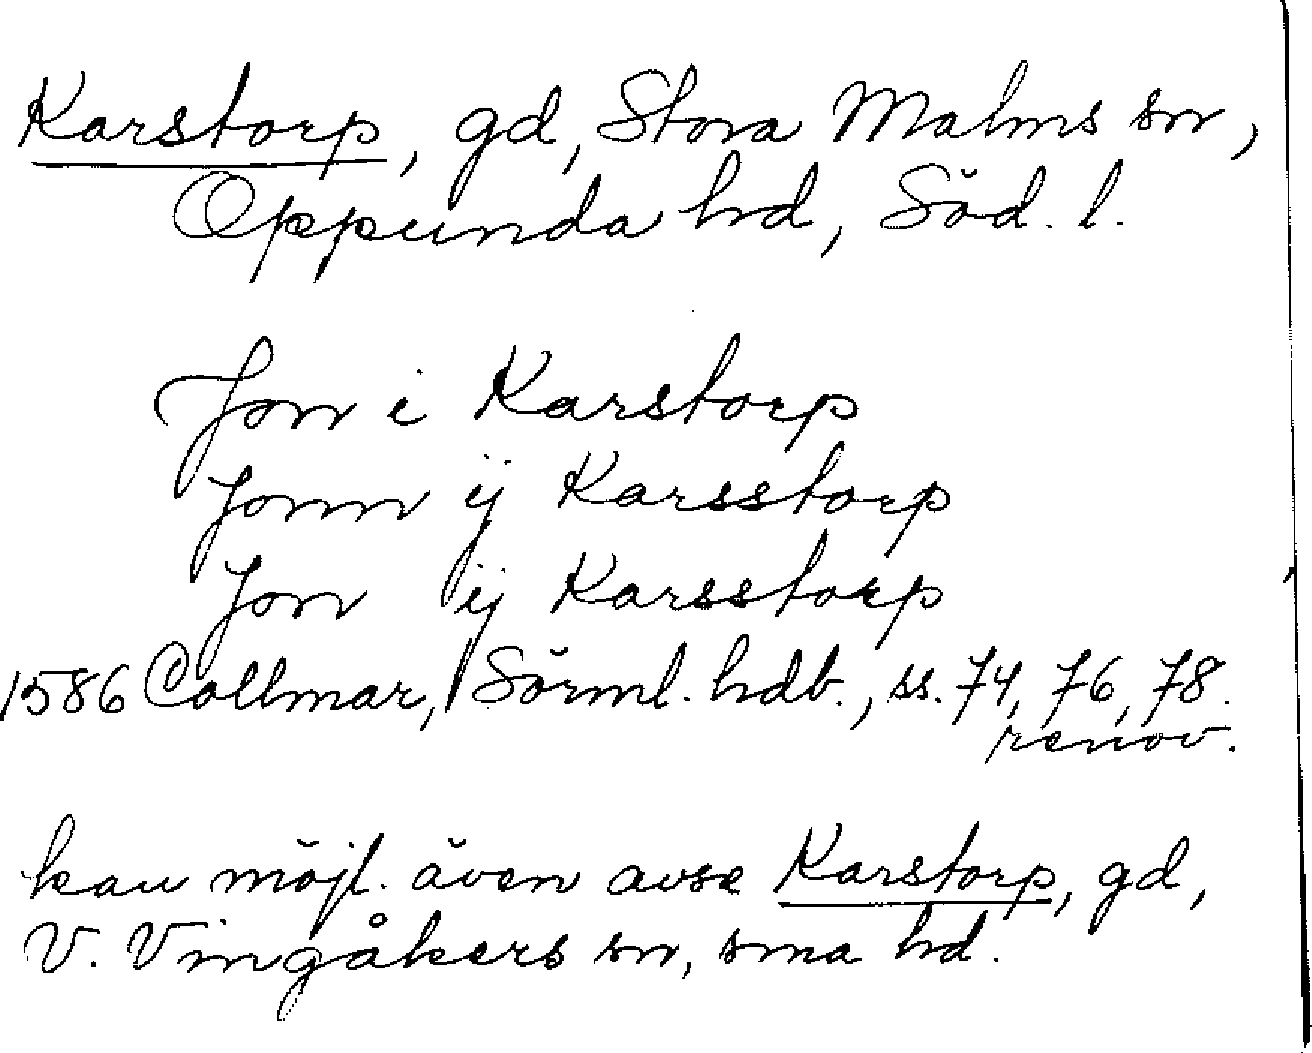 Karstorp, gd, Stora Malms sn,
Oppunda hd, Söd. l.
Jon i Karstorp
Jonn ij Karsstorp
Jon ij Karsstorp
1586 Collmar, Sörml. hdb., ss. 74, 76, 78.
renov.
kan möjl. även avse Karstorp, gd,
V. Vingåkers sn, sma hd.